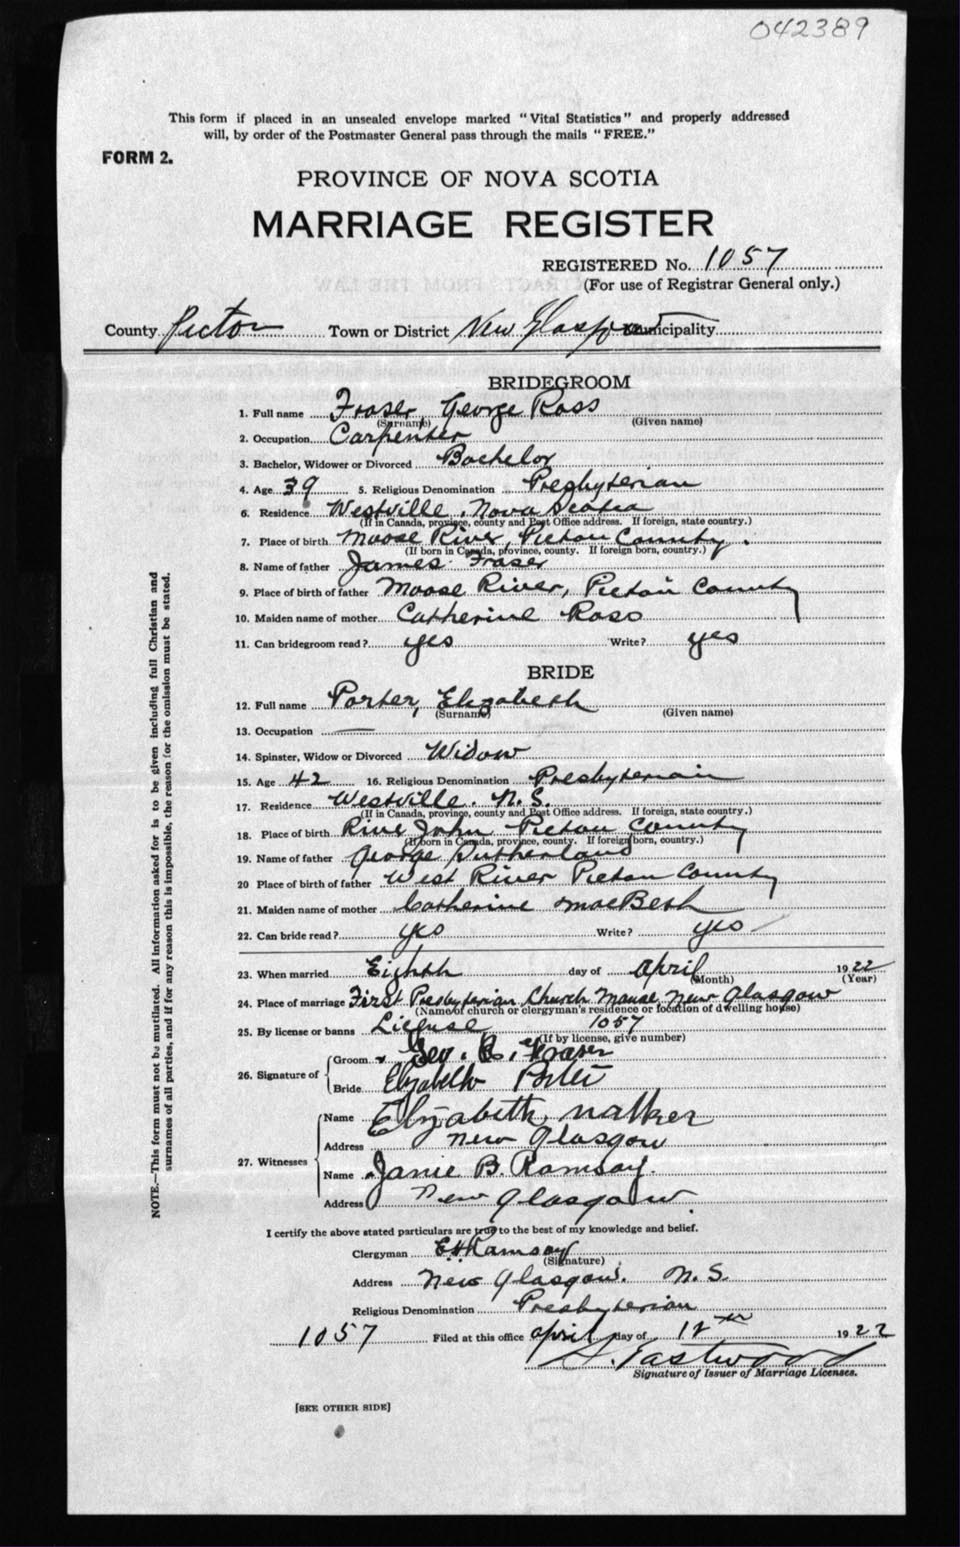 042389
This form if placed in an unsealed envelope marked "Vital Statistics" and properly addressed
will, by order of the Postmaster General pass through the mails "FREE."
FORM 2.
PROVINCE OF NOVA SCOTIA
MARRIAGE REGISTER
REGISTERED No. 1057
(For use of Registrar General only.)
County Pictou Town or District New Glasgow Municipality
BRIDEGROOM
1. Full name Fraser George Ross
(Surname) (Given name)
2. Occupation Carpenter
3. Bachelor, Widower or Divorced Bachelor
4. Age 39 5. Religious Denomination Presbyterian
6. Residence Westville, Nova Scotia
(If in Canada, province, county and Post Office address. If foreign, state country.)
7. Place of birth Moose River, Pictou County.
(If born in Canada, province, county. If foreign born, country.)
8. Name of father James Fraser
9. Place of birth of father Moose River, Pictou County
10. Maiden name of mother Catherine Ross
11. Can bridegroom read? yes Write? yes
BRIDE
12. Full name Porter, Elizabeth
(Surname) (Given name)
13. Occupation —
14. Spinster, Widow or Divorced Widow
15. Age 42 16. Religious Denomination Presbyterian
17. Residence Westville. N.S.
(If in Canada, province, county and Post Office address. If foreign, state country.)
18. Place of birth River John Pictou County
(If born in Canada, province, county. If foreign born, country.)
19. Name of father George Sutherland
20 Place of birth of father West River Pictou County
21. Maiden name of mother Catherine MacBeth
22. Can bride read? yes Write? yes
23. When married Eighth day of April 1922
(Month) (Year)
24. Place of marriage First Presbyterian Church Manse New Glasgow
(Name of church or clergyman's residence or location of dwelling house)
25. By license or banns License 1057
(If by license, give number)
26. Signature of Groom Geo. R. Fraser
Bride Elizabeth Porter
27. Witnesses Name Elizabeth Walker
Address New Glasgow
Name Janie B. Ramsay.
Address New Glasgow.
I certify the above stated particulars are true to the best of my knowledge and belief.
Clergyman E H Ramsay
(Signature)
Address New Glasgow. N.S.
Religious Denomination Presbyterian
1057 Filed at this office April day of 12th 1922
Eastwood
Signature of Issuer of Marriage Licenses.
[SEE OTHER SIDE]
NOTE.—This form must not be mutilated. All information asked for is to be given including full Christian and
surnames of all parties, and if for any reason this is impossible, the reason for the omission must be stated.